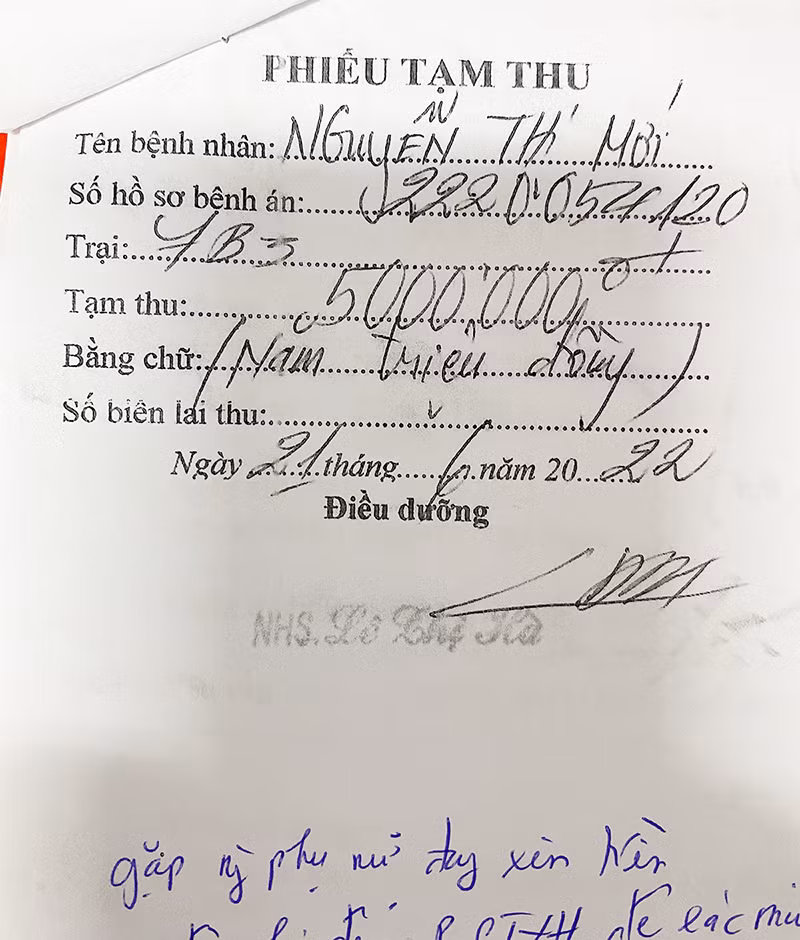 PHIẾU TẠM THU
Tên bệnh nhân: NGUYỄN THỊ MỚI
Số hồ sơ bệnh án: 2220054120
Trại: 4B3
Tạm thu: 5000.000đ
Bằng chữ: (Năm triệu đồng)
Số biên lai thu:
Ngày 21 tháng 6 năm 2022
Điều dưỡng
NHS. Lê Thị Hà
gặp phụ nữ
để các